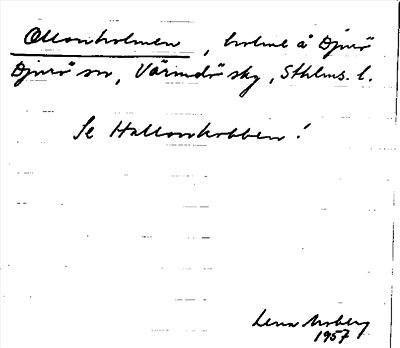 Ollonholmen, holme å Djurö
Djurö sn, Värmdö sky, Sthlms. l.
Se Hallonkobben!
Lena Moberg
1957